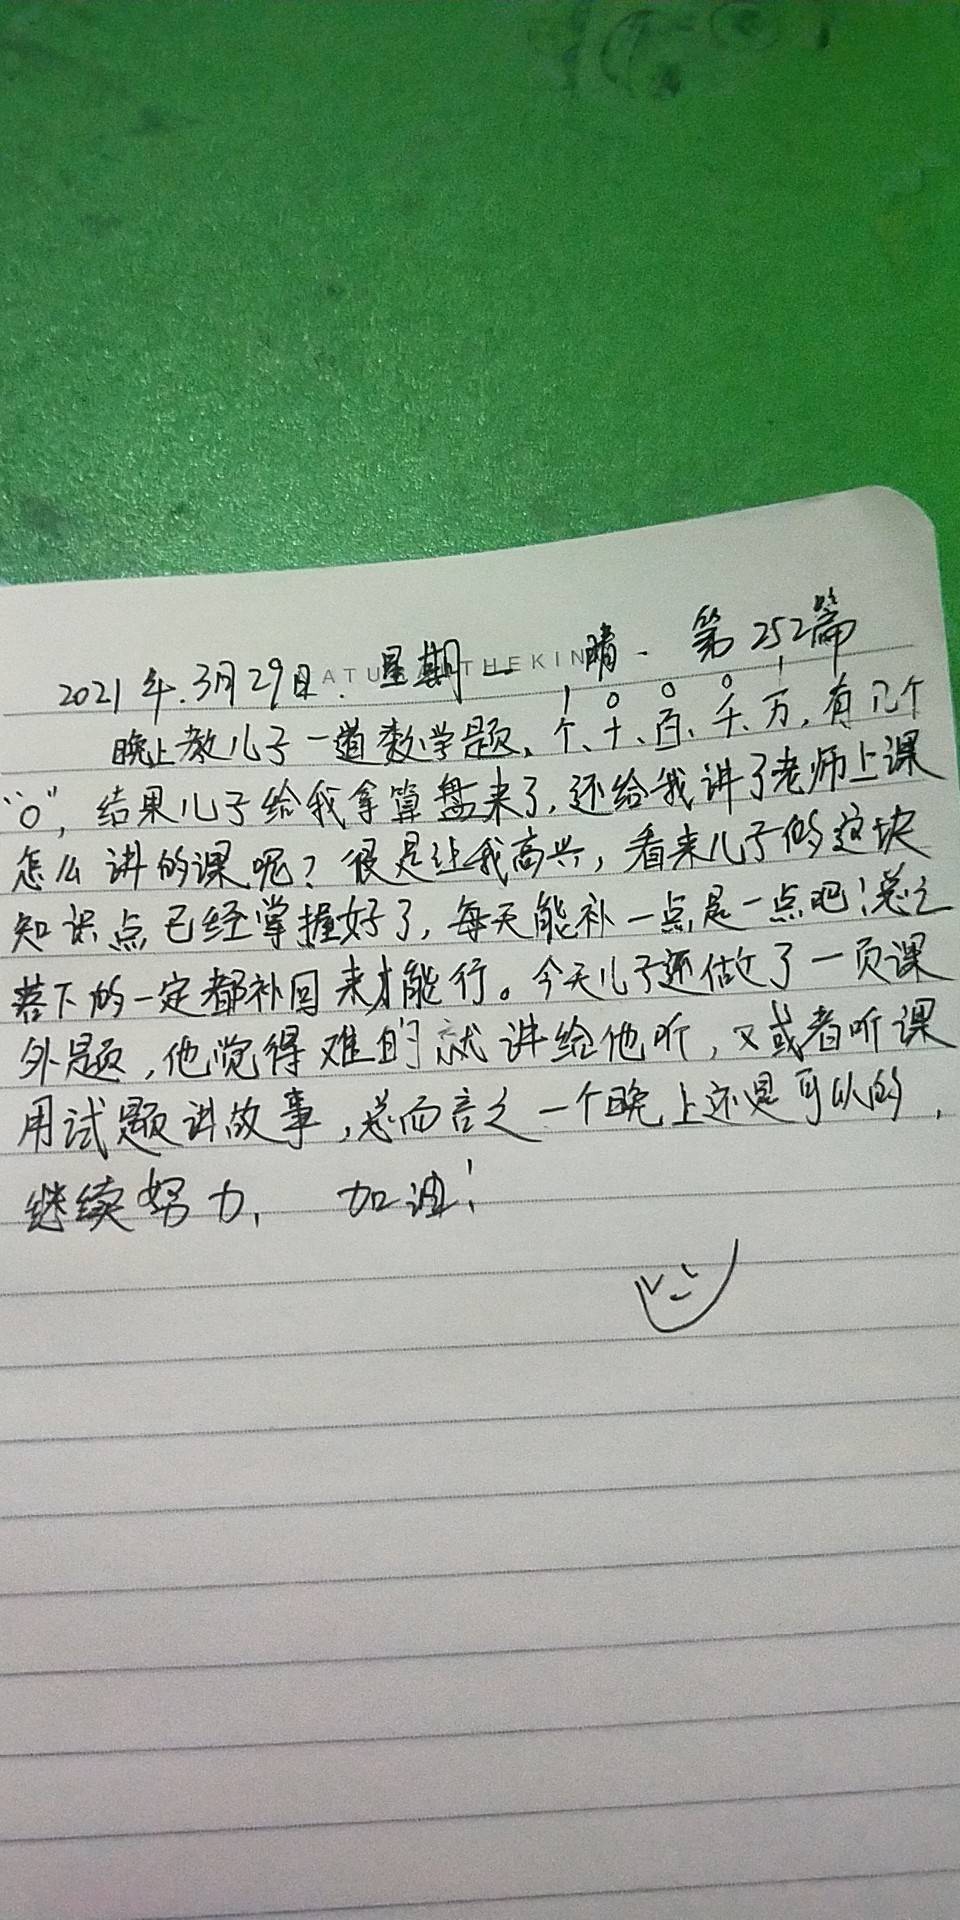 2021年.3月29日. 星期一 晴. 第252篇
ATU THEKIN
1 0 0 0 1
晚上教儿子一道数学题,个、十、百、千、万,有几个
“0”,结果儿子给我拿算盘来了,还给我讲了老师上课
怎么讲的课呢?很是让我高兴,看来儿子的这块
知识点已经掌握好了,每天能补一点是一点吧!总之
落下的一定都补回来才能行。今天儿子还做了一页课
外题,他觉得难的就讲给他听,又或者听课
用试题讲故事,总而言之一个晚上还是可以的,
继续努力, 加油!